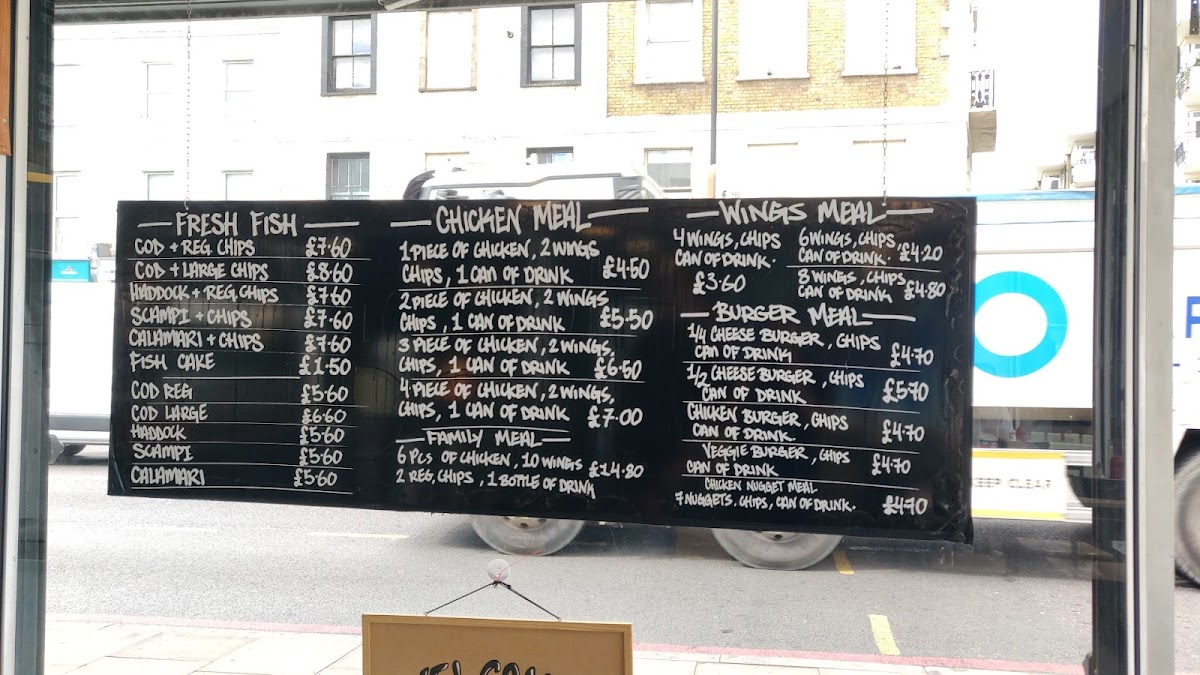 FRESH FISH
COD + REG CHIPS £7.60
COD + LARGE CHIPS £8.60
HADDOCK + REG CHIPS £7.60
SCAMPI + CHIPS £7.60
CALAMARI + CHIPS £7.60
FISH CAKE £1.50
COD REG £5.60
COD LARGE £6.60
HADDOCK £5.60
SCAMPI £5.60
CALAMARI £5.60
CHICKEN MEAL
1 PIECE OF CHICKEN, 2 WINGS
CHIPS, 1 CAN OF DRINK £4.50
2 PIECE OF CHICKEN, 2 WINGS
CHIPS, 1 CAN OF DRINK £5.50
3 PIECE OF CHICKEN, 2 WINGS,
CHIPS, 1 CAN OF DRINK £6.50
4 PIECE OF CHICKEN, 2 WINGS,
CHIPS, 1 CAN OF DRINK £7.00
FAMILY MEAL
6 PCS OF CHICKEN, 10 WINGS £14.80
2 REG, CHIPS, 1 BOTTLE OF DRINK
WINGS MEAL
4 WINGS, CHIPS
CAN OF DRINK.
£3.60
6 WINGS, CHIPS
CAN OF DRINK. £4.20
8 WINGS, CHIPS
CAN OF DRINK £4.80
BURGER MEAL
1/4 CHEESE BURGER, CHIPS
CAN OF DRINK £4.70
1/2 CHEESE BURGER, CHIPS
CAN OF DRINK £5.70
CHICKEN BURGER, CHIPS
CAN OF DRINK. £4.70
VEGGIE BURGER, CHIPS
CAN OF DRINK £4.70
CHICKEN NUGGET MEAL
7 NUGGETS, CHIPS, CAN OF DRINK. £4.70
KEEP CLEAR